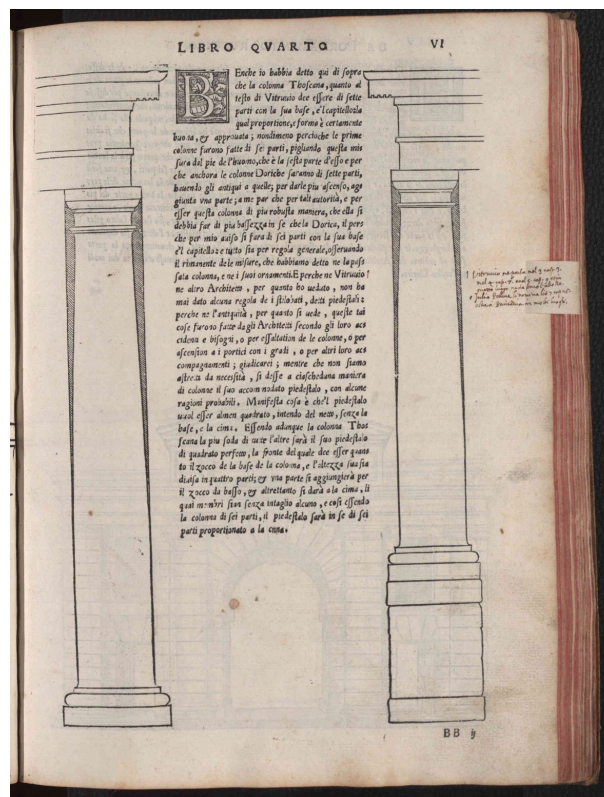 LIBRO QVARTO
VI
BEnche io habbia detto qui di sopra
che la colonna Thoscana, quanto al
testo di Vitruuio dee essere di sette
parti con la sua base, e'l capitello:la
qual proportione, e forma è certamente
buona, & approuata; nondimeno percioche le prime
colonne furono fatte di sei parti, pigliando questa mis
sura dal pie de l'huomo, che è la sesta parte d'esso e per
che anchora le colonne Doriche saranno di sette parti,
hauendo gli antiqui a quelle; per darle piu ascenso, ag
giunta vna parte; a me par che per tal autorità, e per
esser questa colonna di piu robusta maniera, che ella si
debbia far di piu bassezza in se che la Dorica, il pers
che per mio auiso si fara di sei parti con la sua base
e'l capitello: e tutto sia per regola generale, osseruando
il rimanente de le misure, che habbiamo detto ne la pass
sata colonna, e ne i suoi ornamenti. E perche ne Vitruuio
ne altro Architetto, per quanto ho ueduto, non ha
mai dato alcuna regola de i stilobati, detti piedestali:
perche ne l'antiquità, per quanto si uede, queste tai
cose furono fatte dagli Architetti secondo gli loro acs
cidenti e bisogni, o per essaltation de le colonne, o per
ascension a i portici con i gradi, o per altri loro acs
compagnamenti; giudicarei; mentre che non siamo
astretti da necessità, si desse a ciascheduna maniera
di colonne il suo accommodato piedestalo, con alcune
ragioni probabili. Manifesta cosa è che'l piedestalo
uuol esser almen quadrato, intendo del netto, senza la
base, e la cima. Essendo adunque la colonna Thos
scana la piu soda di tutte l'altre farà il suo piedestalo
di quadrato perfetto, la fronte del quale dee esser quans
to il zocco de la base de la colonna, e l'altezza sua sia
diuisa in quattro parti; & vna parte si aggiungierà per
il zocco da basso, & altrettanto si darà a la cima, li
quai membri sian senza intaglio alcuno, e cosi essendo
la colonna di sei parti, il piedestalo sarà in se di sei
parti proportionato a la
BB ij